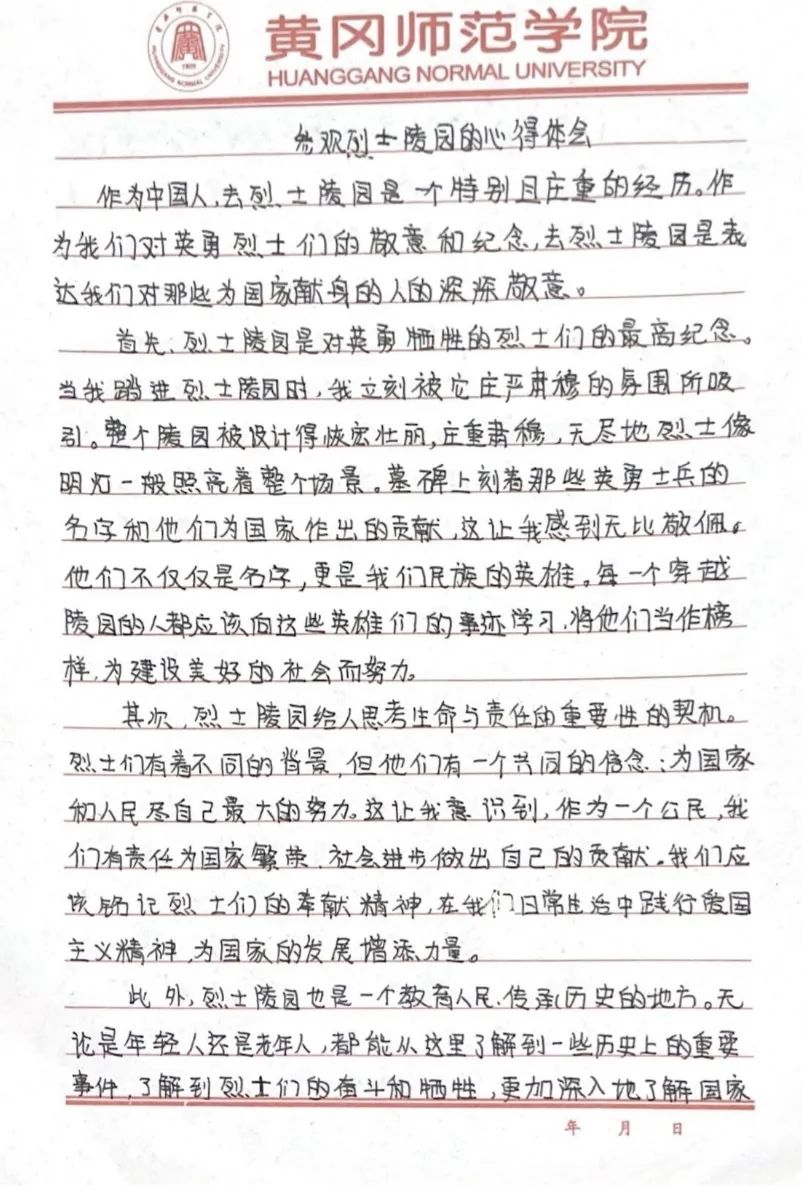 黄冈师范学院
HUANGGANG NORMAL UNIVERSITY
参观烈士陵园的心得体会
作为中国人,去烈士陵园是一个特别且庄重的经历。作
为我们对英勇烈士们的敬意和纪念,去烈士陵园是表
达我们对那些为国家献身的人的深深敬意。
首先,烈士陵园是对英勇牺牲的烈士们的最高纪念。
当我踏进烈士陵园时,我立刻被它庄严肃穆的氛围所吸
引。整个陵园被设计得恢宏壮丽,庄重肃穆,无尽地烈士像
明灯一般照亮着整个场景。墓碑上刻着那些英勇士兵的
名字和他们为国家作出的贡献,这让我感到无比敬佩。
他们不仅仅是名字,更是我们民族的英雄。每一个穿越
陵园的人都应该向这些英雄们的事迹学习,将他们当作榜
样,为建设美好的社会而努力。
其次,烈士陵园给人思考生命与责任的重要性的契机。
烈士们有着不同的背景,但他们有一个共同的信念:为国家
和人民尽自己最大的努力。这让我意识到,作为一个公民,我
们有责任为国家繁荣、社会进步做出自己的贡献。我们应
该铭记烈士们的奉献精神,在我们日常生活中践行爱国
主义精神,为国家的发展增添力量。
此外,烈士陵园也是一个教育人民、传承历史的地方。无
论是年轻人还是老年人,都能从这里了解到一些历史上的重要
事件,了解到烈士们的奋斗和牺牲,更加深入地了解国家
年 月 日